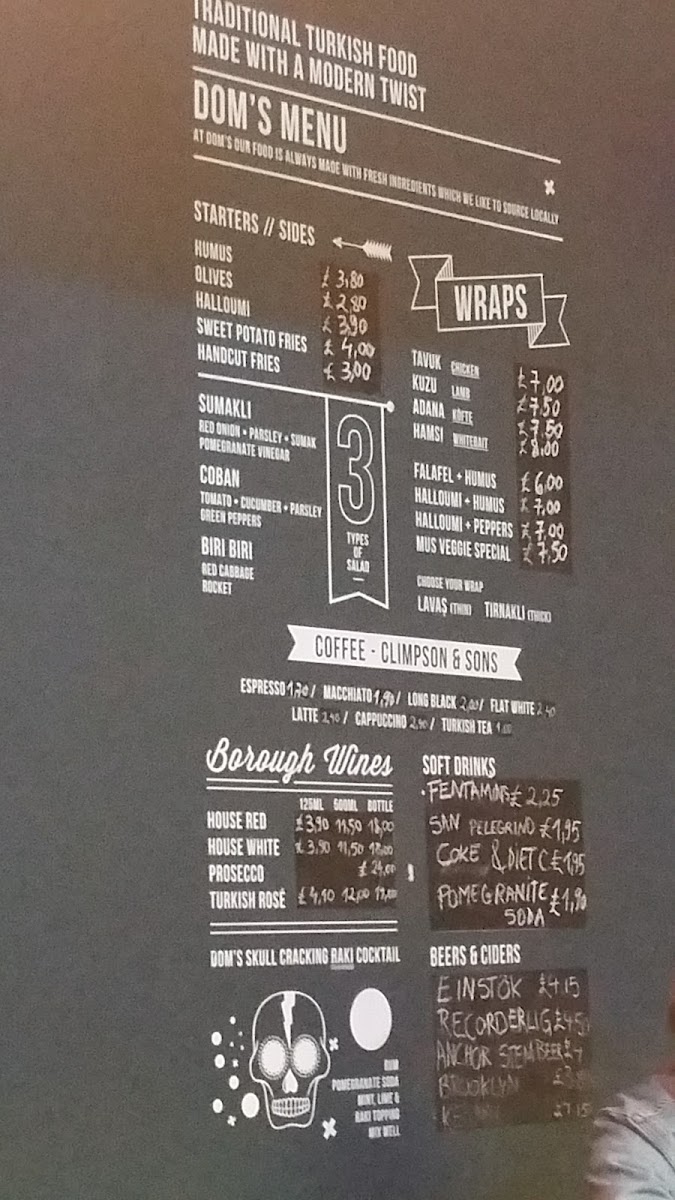 TRADITIONAL TURKISH FOOD
MADE WITH A MODERN TWIST
DOM'S MENU
AT DOM'S OUR FOOD IS ALWAYS MADE WITH FRESH INGREDIENTS WHICH WE LIKE TO SOURCE LOCALLY
STARTERS // SIDES
HUMUS £3,80
OLIVES £2,80
HALLOUMI £3,90
SWEET POTATO FRIES £4,00
HANDCUT FRIES £3,00
SUMAKLI
RED ONION • PARSLEY • SUMAK
POMEGRANATE VINEGAR
COBAN
TOMATO • CUCUMBER • PARSLEY
GREEN PEPPERS
BIRI BIRI
RED CABBAGE
ROCKET
3
TYPES
OF
SALAD
WRAPS
TAVUK CHICKEN £7,00
KUZU LAMB £7,50
ADANA KÖFTE £7,50
HAMSI WHITEBAIT £8,00
FALAFEL + HUMUS £6,00
HALLOUMI + HUMUS £7,00
HALLOUMI + PEPPERS £7,00
MUS VEGGIE SPECIAL £7,50
CHOOSE YOUR WRAP
LAVAŞ (THIN) TIRNAKLI (THICK)
COFFEE - CLIMPSON & SONS
ESPRESSO 1,70 / MACCHIATO 1,90 / LONG BLACK / FLAT WHITE 2,40
LATTE / CAPPUCCINO / TURKISH TEA
Borough Wines
125ML 500ML BOTTLE
HOUSE RED £3,90 11,50 18,00
HOUSE WHITE £3,90 11,50 18,00
PROSECCO £24,00
TURKISH ROSÉ £4,10 12,00
SOFT DRINKS
FENTAMINS £2,25
SAN PELEGRINO £1,95
COKE & DIET C £1,95
POMEGRANITE £1,90
SODA
DOM'S SKULL CRACKING RAKI COCKTAIL
RUM
POMEGRANATE SODA
MINT, LIME &
RAKI TOPPING
MIX WELL
BEERS & CIDERS
EINSTÖK £4.15
RECORDERLIG £4,50
ANCHOR STEM BEER £4
BROOKLYN